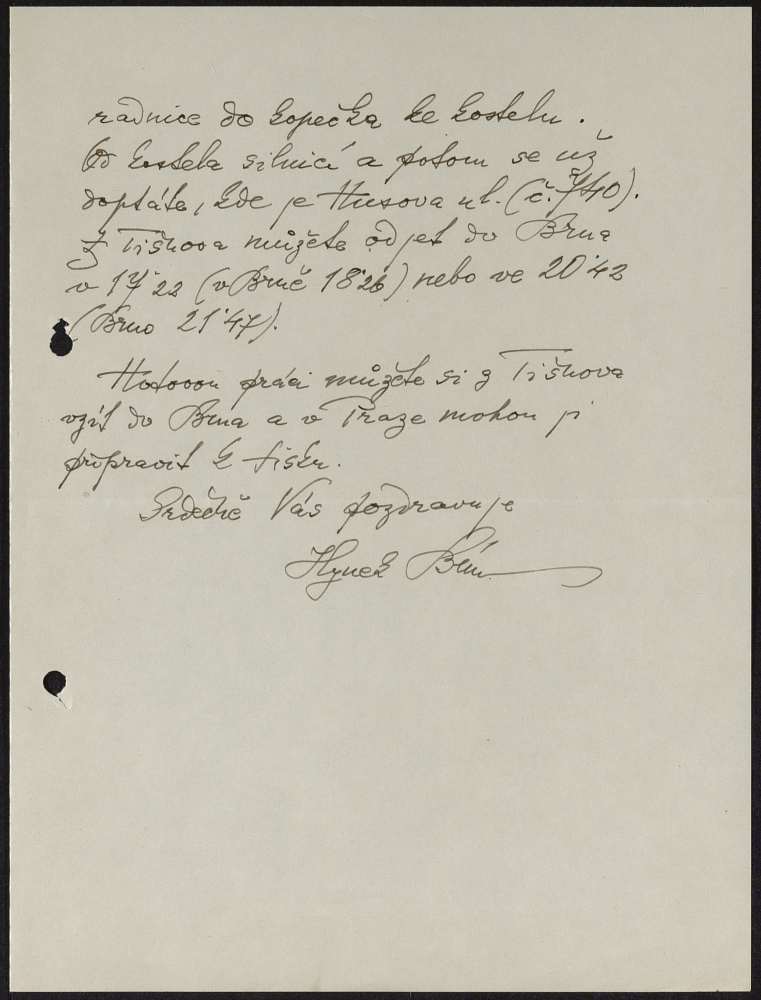 radnice do kopečka ke kostelu.
Od kostela silnicí a potom se už
doptáte, kde je Husova ul. (č. 740).
Z Tišnova můžete odjet do Brna
v 17˙22 (v Brně 18˙26) nebo ve 20˙42
(Brno 21˙47).
Hotovou práci můžete si z Tišnova
vzít do Brna a v Praze mohou ji
připravit k tisku.
Srdečně Vás pozdravuje
Hynek Bím